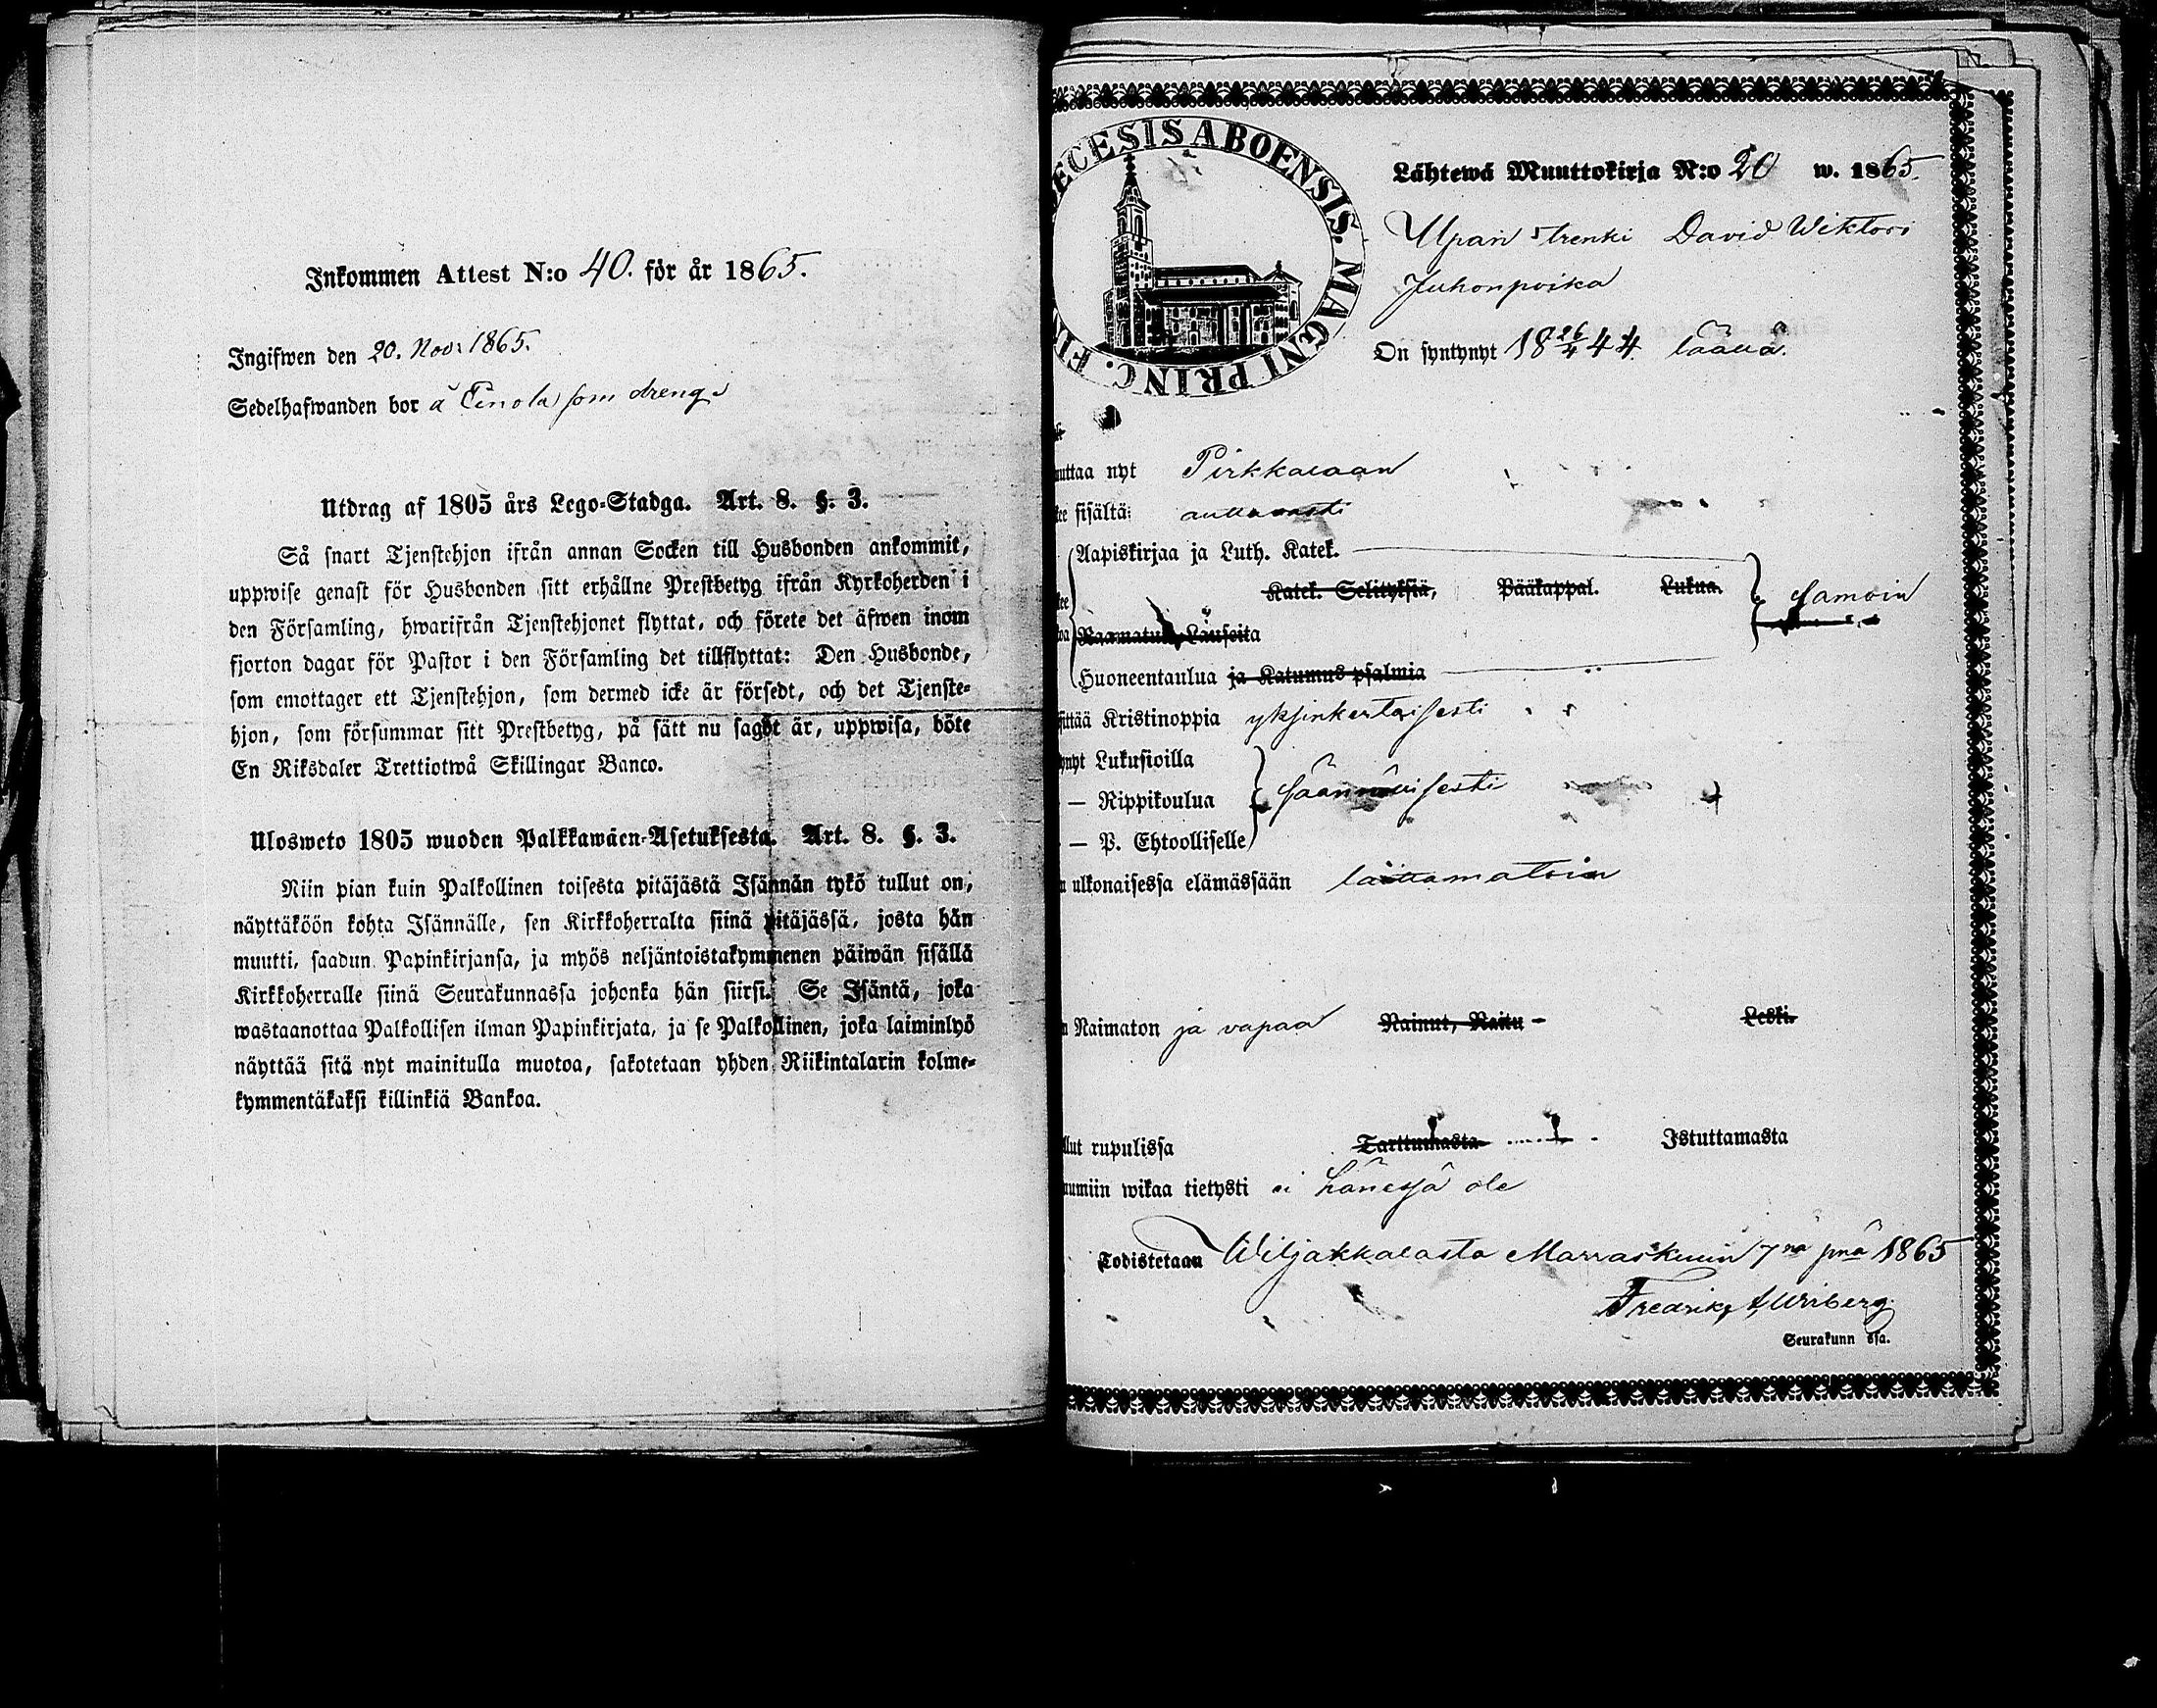 Inkommen Attest N:o 40. för år 1865.
Ingifwen den 20. Nov: 1865.
Sedelhafwanden bor å Penola som dreng
Utdrag af 1805 års Lego-Stadga. Art. 8. §. 3.
Så snart Tjenstehjon ifrån annan Socken till Husbonden ankommit,
uppwise genast för Husbonden sitt erhållne Prestbetyg ifrån Kyrkoherden i
den Församling, hwarifrån Tjenstehjonet flyttat, och förete det äfwen inom
fjorton dagar för Pastor i den Församling det tillflyttat: Den Husbonde,
som emottager ett Tjenstehjon, som dermed icke är försedt, och det Tjenste-
hjon, som försummar sitt Prestbetyg, på sätt nu sagdt är, uppwisa, böte
En Riksdaler Trettiotwå Skillingar Banco.
Ulosweto 1805 wuoden Palkkawäen-Asetuksesta. Art. 8. §. 3.
Niin pian kuin Palkollinen toisesta pitäjästä Isännän tykö tullut on,
näyttäköön kohta Isännälle, sen Kirkkoherralta siinä pitäjässä, josta hän
muutti, saadun Papinkirjansa, ja myös neljäntoistakymmenen päiwän sisällä
Kirkkoherralle siinä Seurakunnassa johonka hän siirsi. Se Isäntä, joka
wastaanottaa Palkollisen ilman Papinkirjata, ja se Palkollinen, joka laiminlyö
näyttää sitä nyt mainitulla muotoa, sakotetaan yhden Riikintalarin kolme-
kymmentäkaksi killinkiä Bankoa.
ECESIS ABOENSIS. MAGNI PRINC. FI
Lähtewä Muuttokirja N:o 20 w. 1865.
trenki David Wiktori
Juhonpoika
On syntynyt 18 26/4 44 täällä.
uttaa nyt Pirkkalaan
sisältä: auttavasti
Aapiskirjaa ja Luth. Katek.
Katek. Selityksiä, Pääkappal. Lukua. samoin
Raamatun Läuseita
Huoneentaulua ja Katumus psalmia
sittää Kristinoppia yksinkertaisesti
ynyt Lukusioilla
— Rippikoulua säännöllisesti
— P. Ehtoolliselle
ulkonaisessa elämässään laittamatoin
Naimaton ja vapaa Nainut, Naitu – Leski.
llut rupulissa Tarttumasta Istuttamasta
umiin wikaa tietysti ei hänessä ole
Todistetaan Wiljakkalasta Marraskuun 7nä pnä 1865
Fredrik
Seurakunn ssa.